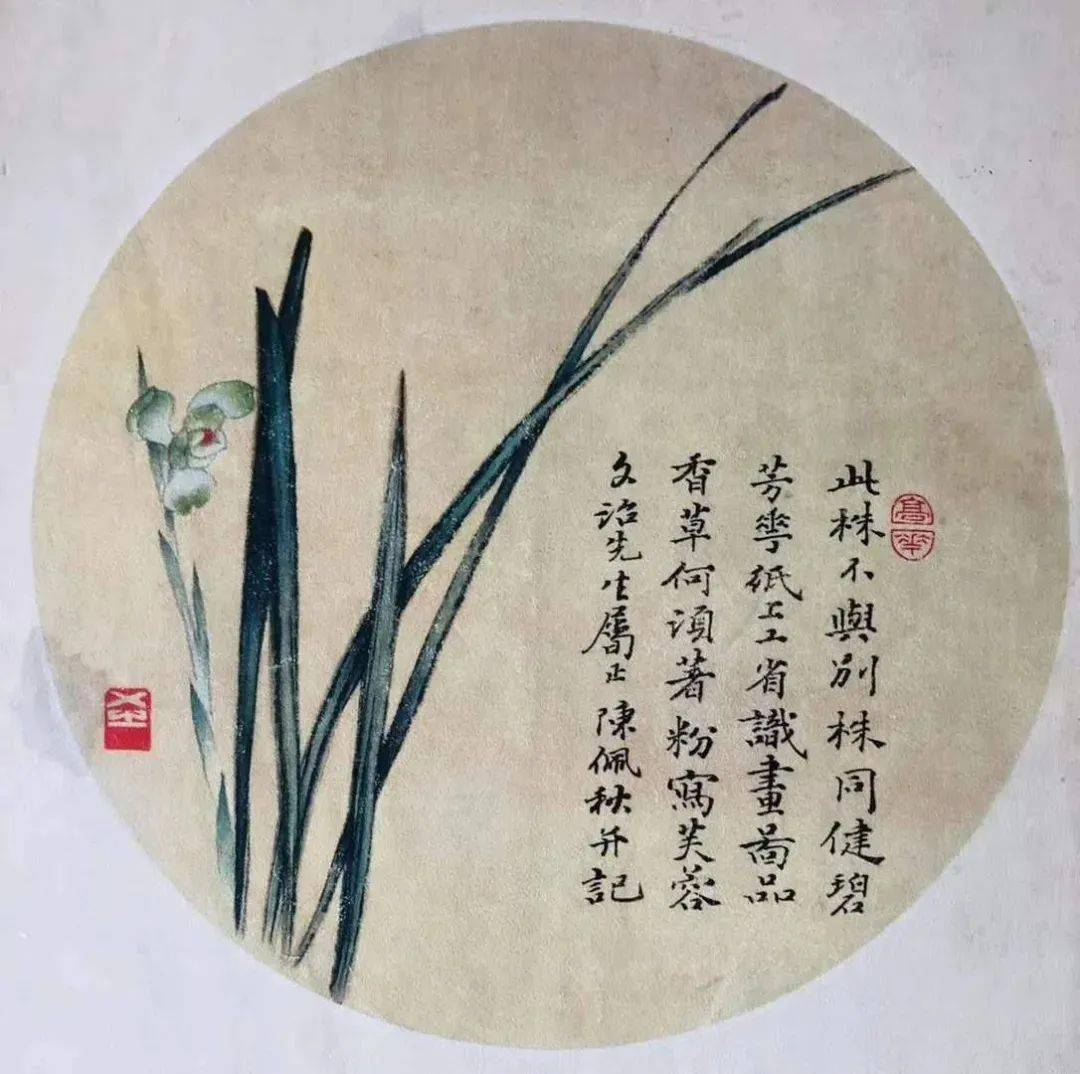 此株不與別株同健碧
芳華紙上工省識畫啚品
香草何須著粉寫芙蓉
文詒先生屬正 陳佩秋并記
高華